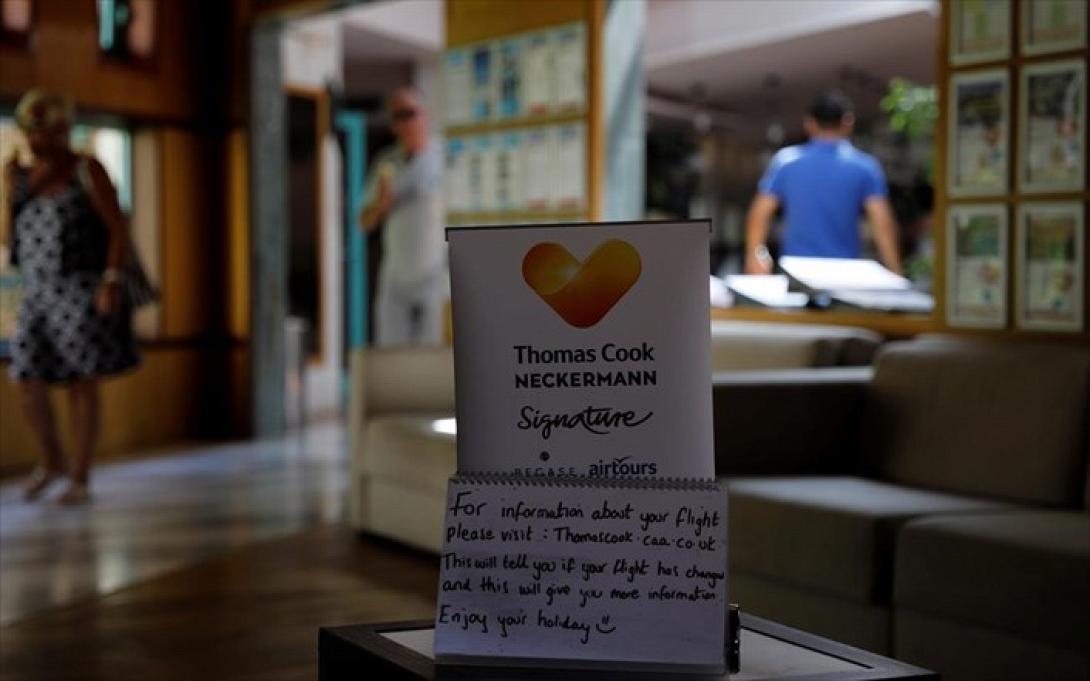 Thomas Cook
NECKERMANN
Signature
airtours
For information about your flight
please visit : Thomascook.caa.co.uk
This will tell you if your flight has changed
and this will give you more information.
Enjoy your holiday